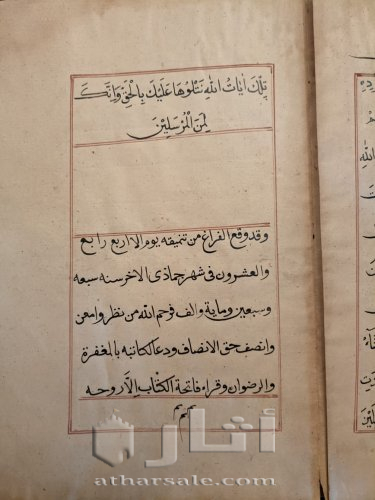 تِلْكَ اٰيَاتُ اللهِ نَتْلُوهَا عَلَيْكَ بِالْحَقِّ وَاِنَّكَ
لَمِنَ الْمُرْسَلِيْنَ
وقد وقع الفراغ من تنميقه يوم الاربع رابع
والعشرون فى شهر جماذى الاخر سنه سبعه
وسبعين وماية والف فرحم الله من نظر وامعن
وانصف حق الانصاف ودعا لكاتبه بالمغفرة
والرضوان وقراء فاتحة الكتاب الا روحه
م م م
أثار
atharsale.com